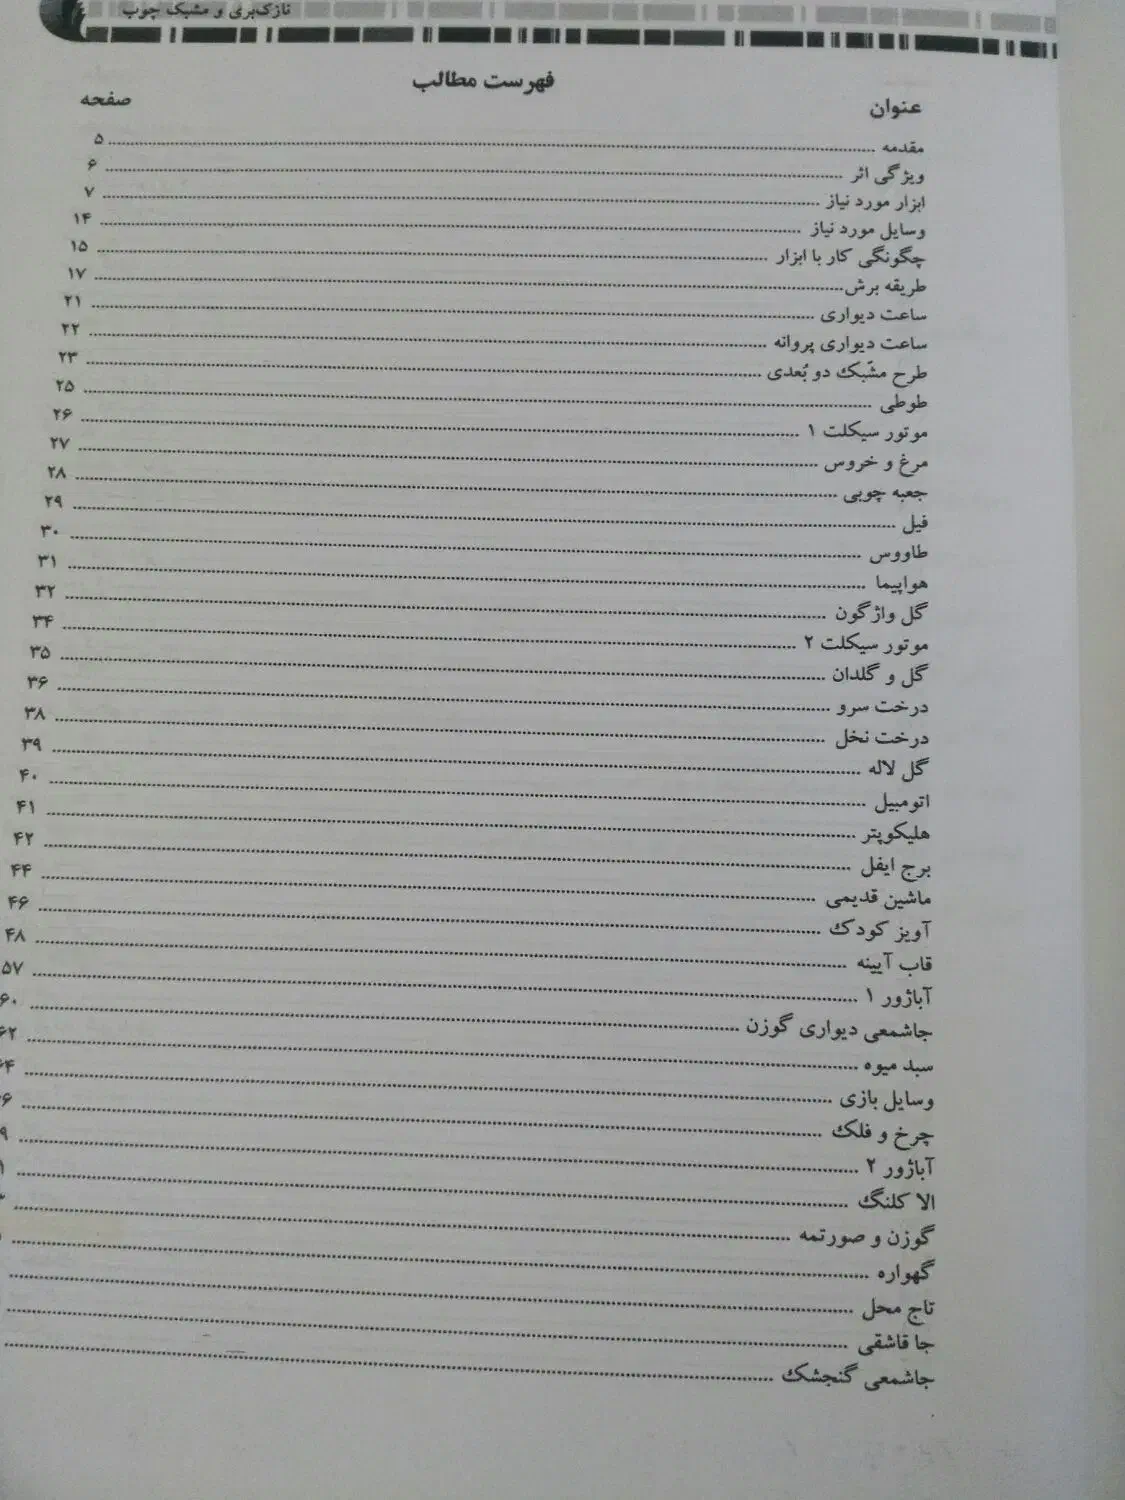 نازک‌بری و مشبک چوب
فهرست مطالب
عنوان صفحه
مقدمه ........ ۵
ویژگی اثر ........ ۶
ابزار مورد نیاز ........ ۷
وسایل مورد نیاز ........ ۱۴
چگونگی کار با ابزار ........ ۱۵
طریقه برش ........ ۱۷
ساعت دیواری ........ ۲۱
ساعت دیواری پروانه ........ ۲۲
طرح مشّبک دو بُعدی ........ ۲۳
طوطی ........ ۲۵
موتور سیکلت ۱ ........ ۲۶
مرغ و خروس ........ ۲۷
جعبه چوبی ........ ۲۸
فیل ........ ۲۹
طاووس ........ ۳۰
هواپیما ........ ۳۱
گل واژگون ........ ۳۲
موتور سیکلت ۲ ........ ۳۴
گل و گلدان ........ ۳۵
درخت سرو ........ ۳۶
درخت نخل ........ ۳۸
گل لاله ........ ۳۹
اتومبیل ........ ۴۰
هلیکوپتر ........ ۴۱
برج ایفل ........ ۴۲
ماشین قدیمی ........ ۴۴
آویز کودک ........ ۴۶
قاب آیینه ........ ۴۸
آباژور ۱ ........ ۵۷
جاشمعی دیواری گوزن ........ ۶۰
سبد میوه ........ ۶۲
وسایل بازی ........ ۶۴
چرخ و فلک ........
آباژور ۲ ........
الا کلنگ ........
گوزن و صورتمه ........
گهواره ........
تاج محل ........
جا قاشقی ........
جاشمعی گنجشک ........